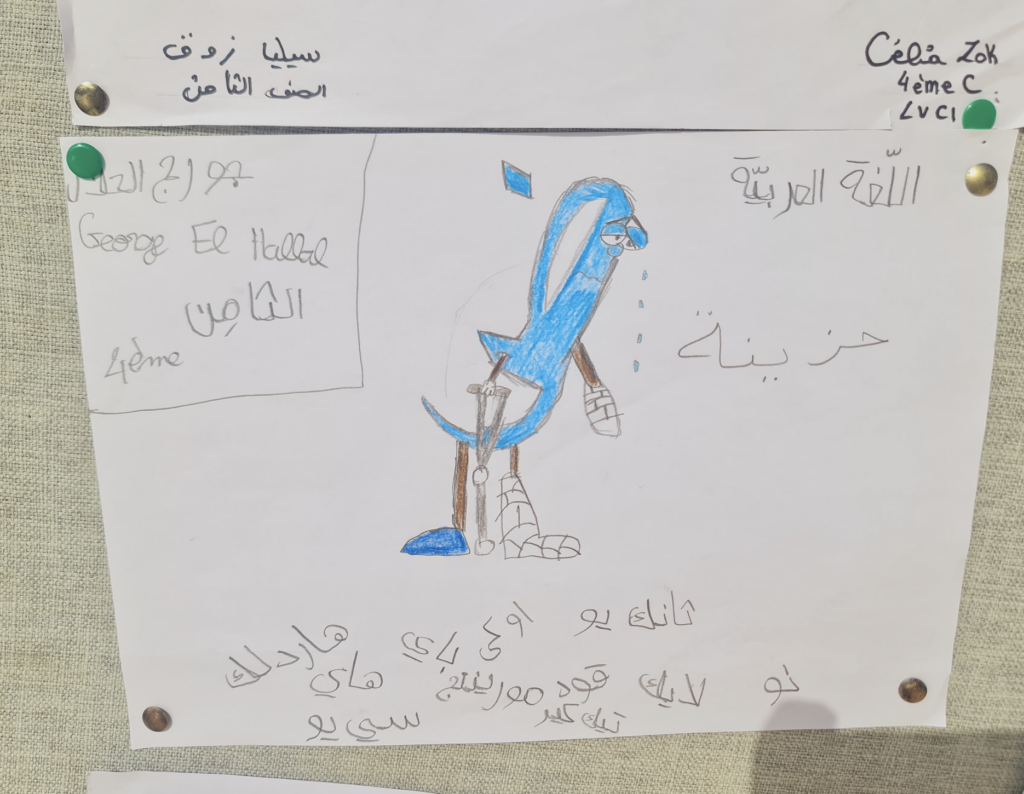 سيليا زوق
الصف الثامن
Célia Zok
4ème C
LVC1
جوراج الحلال
George El Hallal
الثامِن
4ème
اللّغة العربيّة
حزينة
ثانك يو اوكي باي هاردلك
نو لايك قود مورينينج هاي
تيك كير سي يو